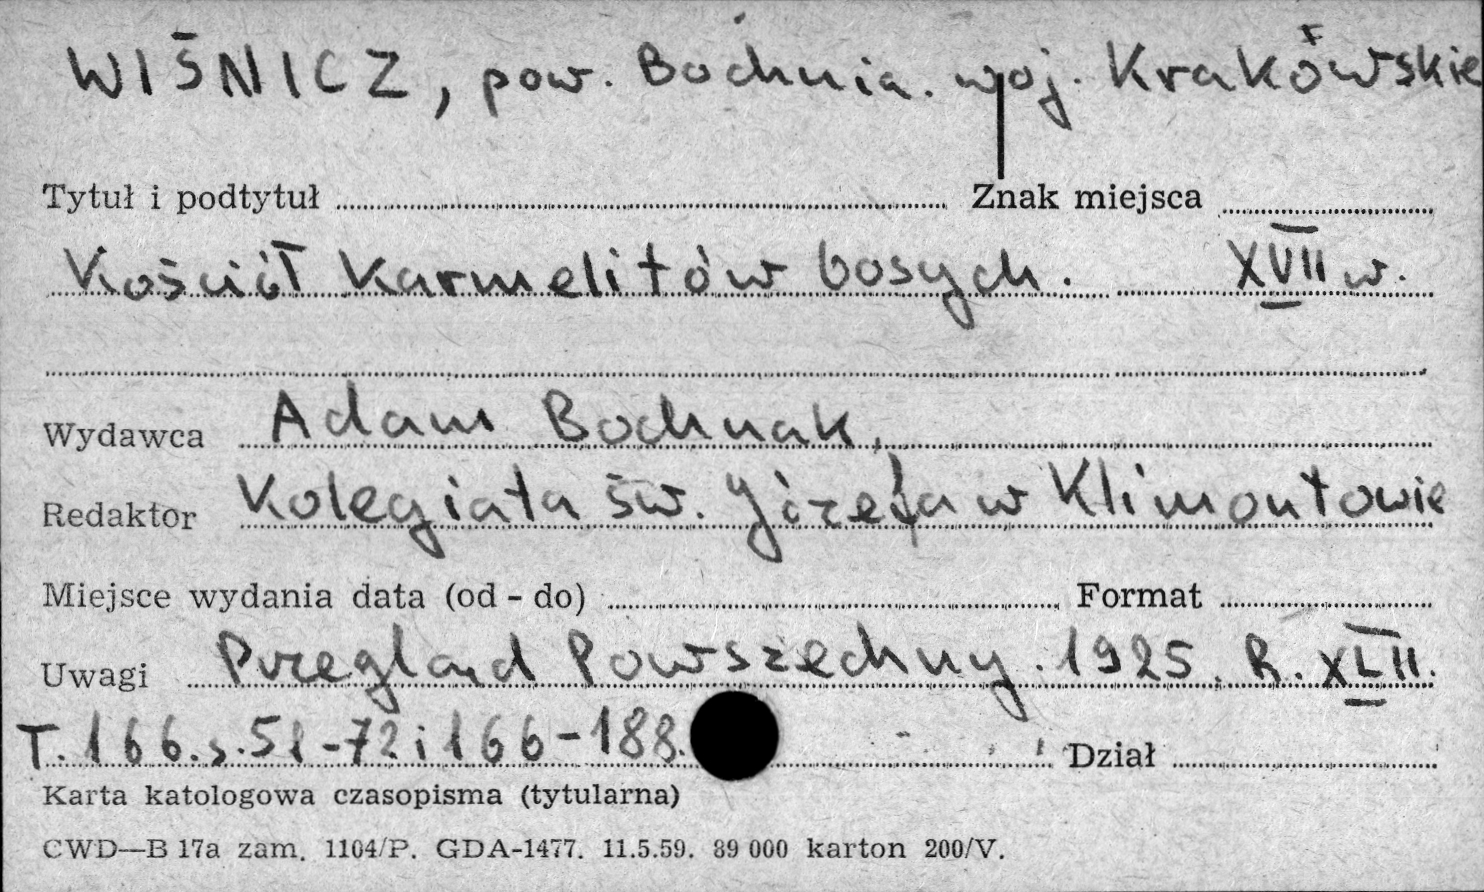 WIŚNICZ, pow. Bochnia. woj. Krakówskie
Tytuł i podtytuł Znak miejsca
Kościół Karmelitów bosych. XVII w.
Wydawca Adam Bochnak,
Redaktor Kolegiata św. Józefa w Klimontowie
Miejsce wydania data (od - do) Format
Uwagi Przegląd Powszechny. 1925. R. XLII.
T. 166. s. 51-72 i 166-188. Dział
Karta katologowa czasopisma (tytularna)
CWD—B 17a zam. 1104/P. GDA-1477. 11.5.59. 89 000 karton 200/V.